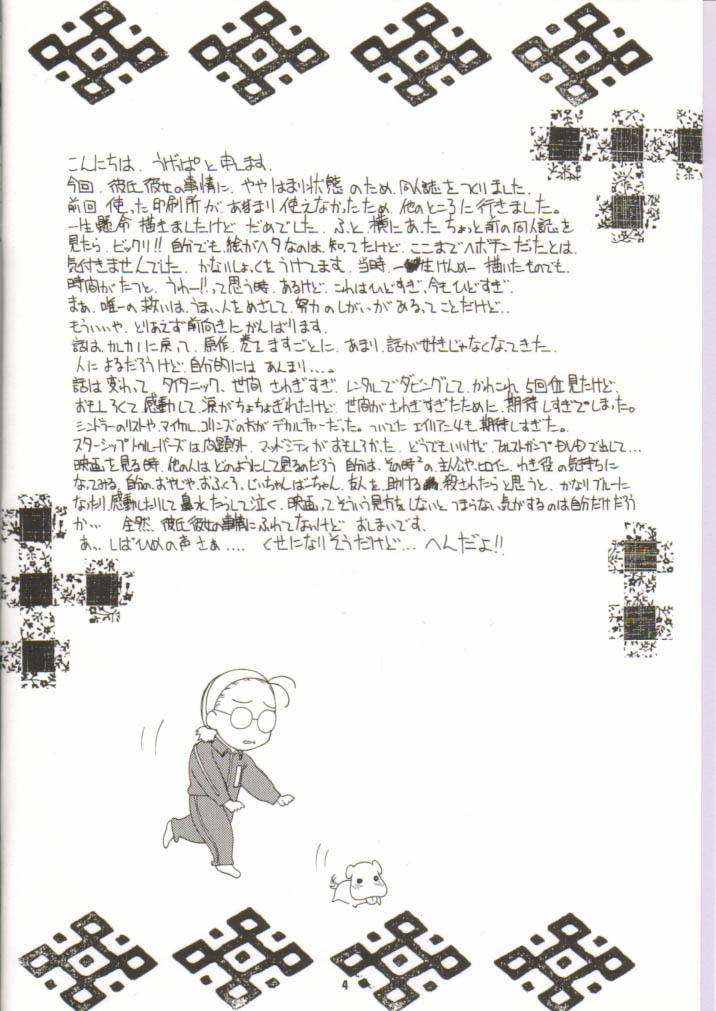 こんにちは、うげっぱと申します。
今回、彼氏彼女の事情に、ややはまり状態のため、同人誌をつくりました。
前回使った印刷所が、あまり使えなかったため、他のところに行きました。
一生懸命描きましたけど だめでした。ふと、横にあったちょっと前の同人誌を
見たら、ビックリ!! 自分でも、絵がヘタなのは、知ってたけど、ここまでヘボチンだったとは、
気付きませんでした。かなりしょっくをうけてます。当時、一生けんめー描いたものでも、
時間がたつと、うわー!!って思う時、あるけど、これはひどすぎ、今もひどすぎ。
まあ、唯一の救いは、うまい人をめざして、努力のしがいがあるってことだけど…
もういいや、とりあえず前向きにがんばります。
話は、カレカノに戻って、原作、巻をますごとに、あまり、話が好きじゃなくなてきた、
人によるだろうけど、自分的には あんまり…。
話は変わって、タイタニック、世間 さわぎすぎ、レンタルでダビングして、かれこれ5回位見たけど、
おもしろくて感動して涙がちょちょぎれたけど、世間がさわぎすぎたために、期待しすぎてしまった。
シンドラーのリストや、マイケル・コリンズの方が デカルチャーだった。ついでに エイリアン4も、期待しすぎた。
スターシップ・トゥルーパーズは問題外、マッドシティがおもしろかった、どうでもいいけど、フォレストガンプもDVDで出して…
映画を見る時、他の人は、どのようにして見るのだろう 自分は、その時々の主人公や、ヒロイン、わき役の気持ちに
なってみる、自分のおやじや、おふくろ、じいちゃん、ばーちゃん、友人を、助ける、殺されたらと思うと、かなりブルーに
なったり、感動したりして、鼻水たらして泣く、映画ってそういう見方をしないと、つまらない気がするのは自分だけだろう
か… 全然、彼氏彼女の事情にふれてないけど おしまいです。
あっ、しばひめの声さあ…. くせになりそうだけど… へんだよ!!
4